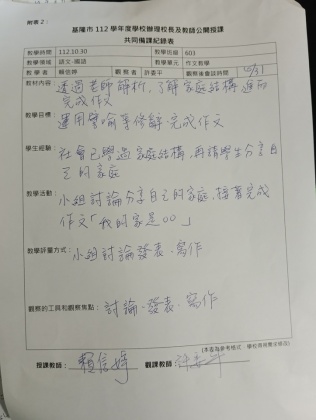 附表2：
基隆市 112 學年度學校辦理校長及教師公開授課
共同備課紀錄表
教學時間 112.10.30 教學班級 603
教學領域 語文-國語 教學單元 作文教學
教學者 賴信婷 觀察者 許委平 觀察後會談時間 10/31
教材內容：透過老師解析,了解家庭結構,進而
完成作文
教學目標：
運用譬喻等修辭,完成作文
學生經驗：
社會已學過家庭結構,再請學生分享自
己的家庭
教學活動：
小組討論分享自己的家庭,接著完成
作文「我的家是○○」
教學評量方式：
小組討論發表、寫作
觀察的工具和觀察焦點：
討論、發表、寫作
(本表為參考格式，學校得視需求修改)
授課教師：賴信婷 觀課教師：許委平